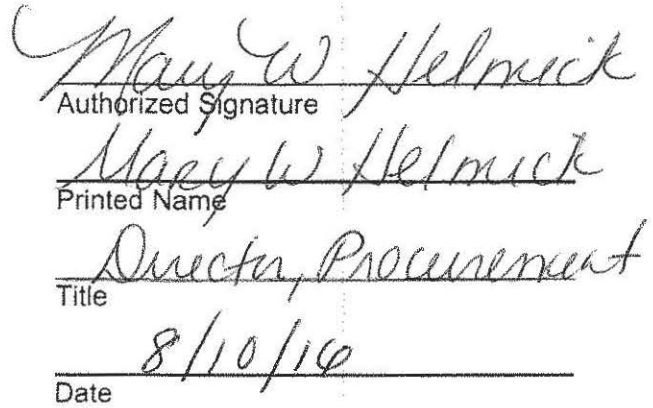 Mary W Helmick
Authorized Signature
Mary W Helmick
Printed Name
Director, Procurement
Title
8/10/16
Date